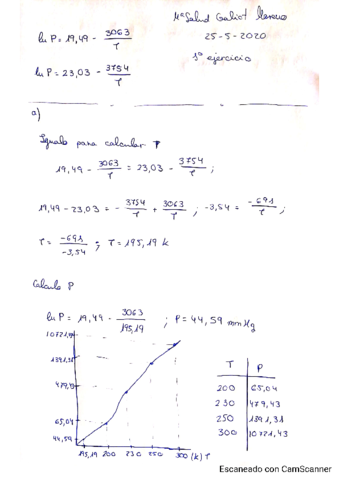 Mª Salud Galiot
25-5-2020
1º ejercicio
ln P = 19,49 - 3063/T
ln P = 23,03 - 3754/T
a)
Igualo para calcular T
19,49 - 3063/T = 23,03 - 3754/T ;
19,49 - 23,03 = - 3754/T + 3063/T ; -3,54 = -691/T ;
T = -691/-3,54 ; T = 195,19 k
Calculo P
ln P = 19,49 - 3063/195,19 ; P = 44,59 mmHg
10721,43
1391,31
479,43
65,04
44,59
195,19 200 230 250 300 (k) T
T P
200 65,04
230 479,43
250 1391,31
300 10721,43
Escaneado con CamScanner